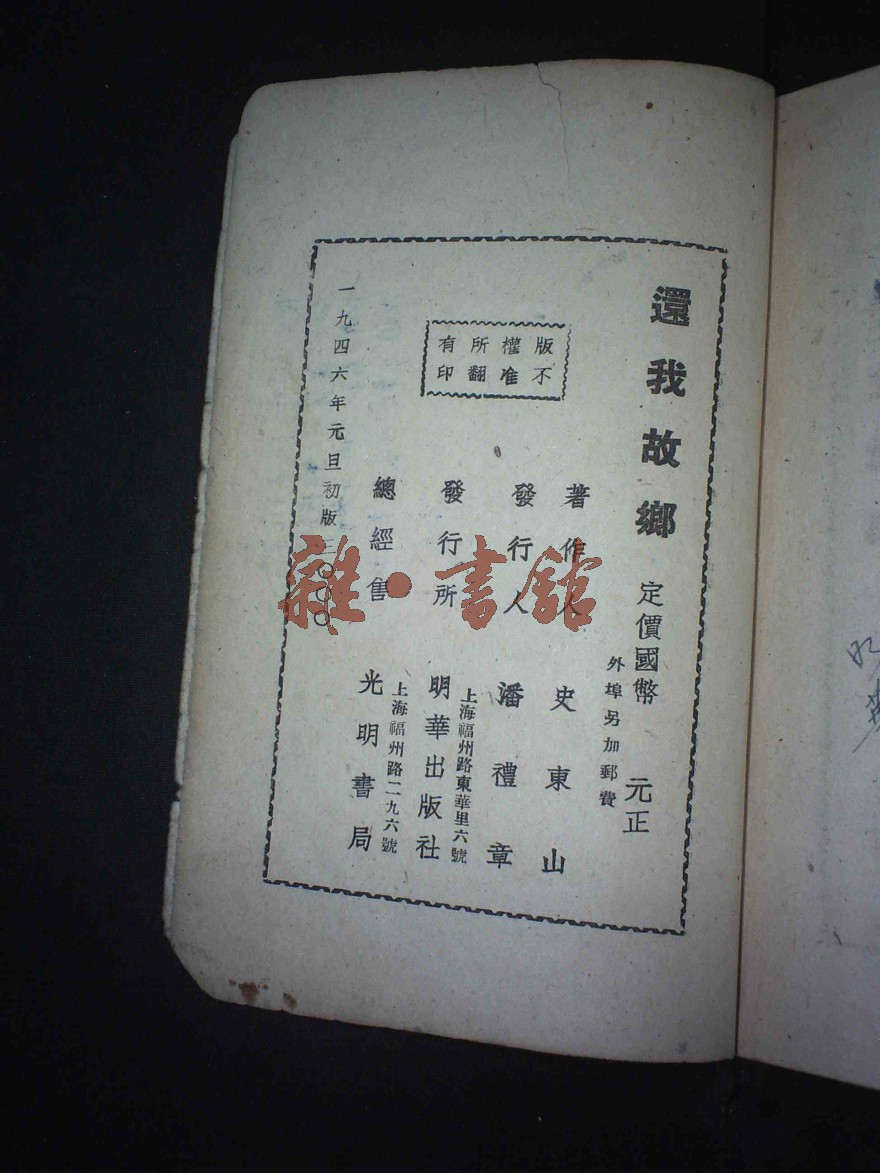 還我故鄉 定價國幣 元正
外埠另加郵費
著作人 史東山
發行人 潘禮章
上海福州路東華里六號
發行所 明華出版社
上海福州路二九六號
總經售 光明書局
版權所有
不准翻印
一九四六年元旦初版 三〇〇〇
雜·書館